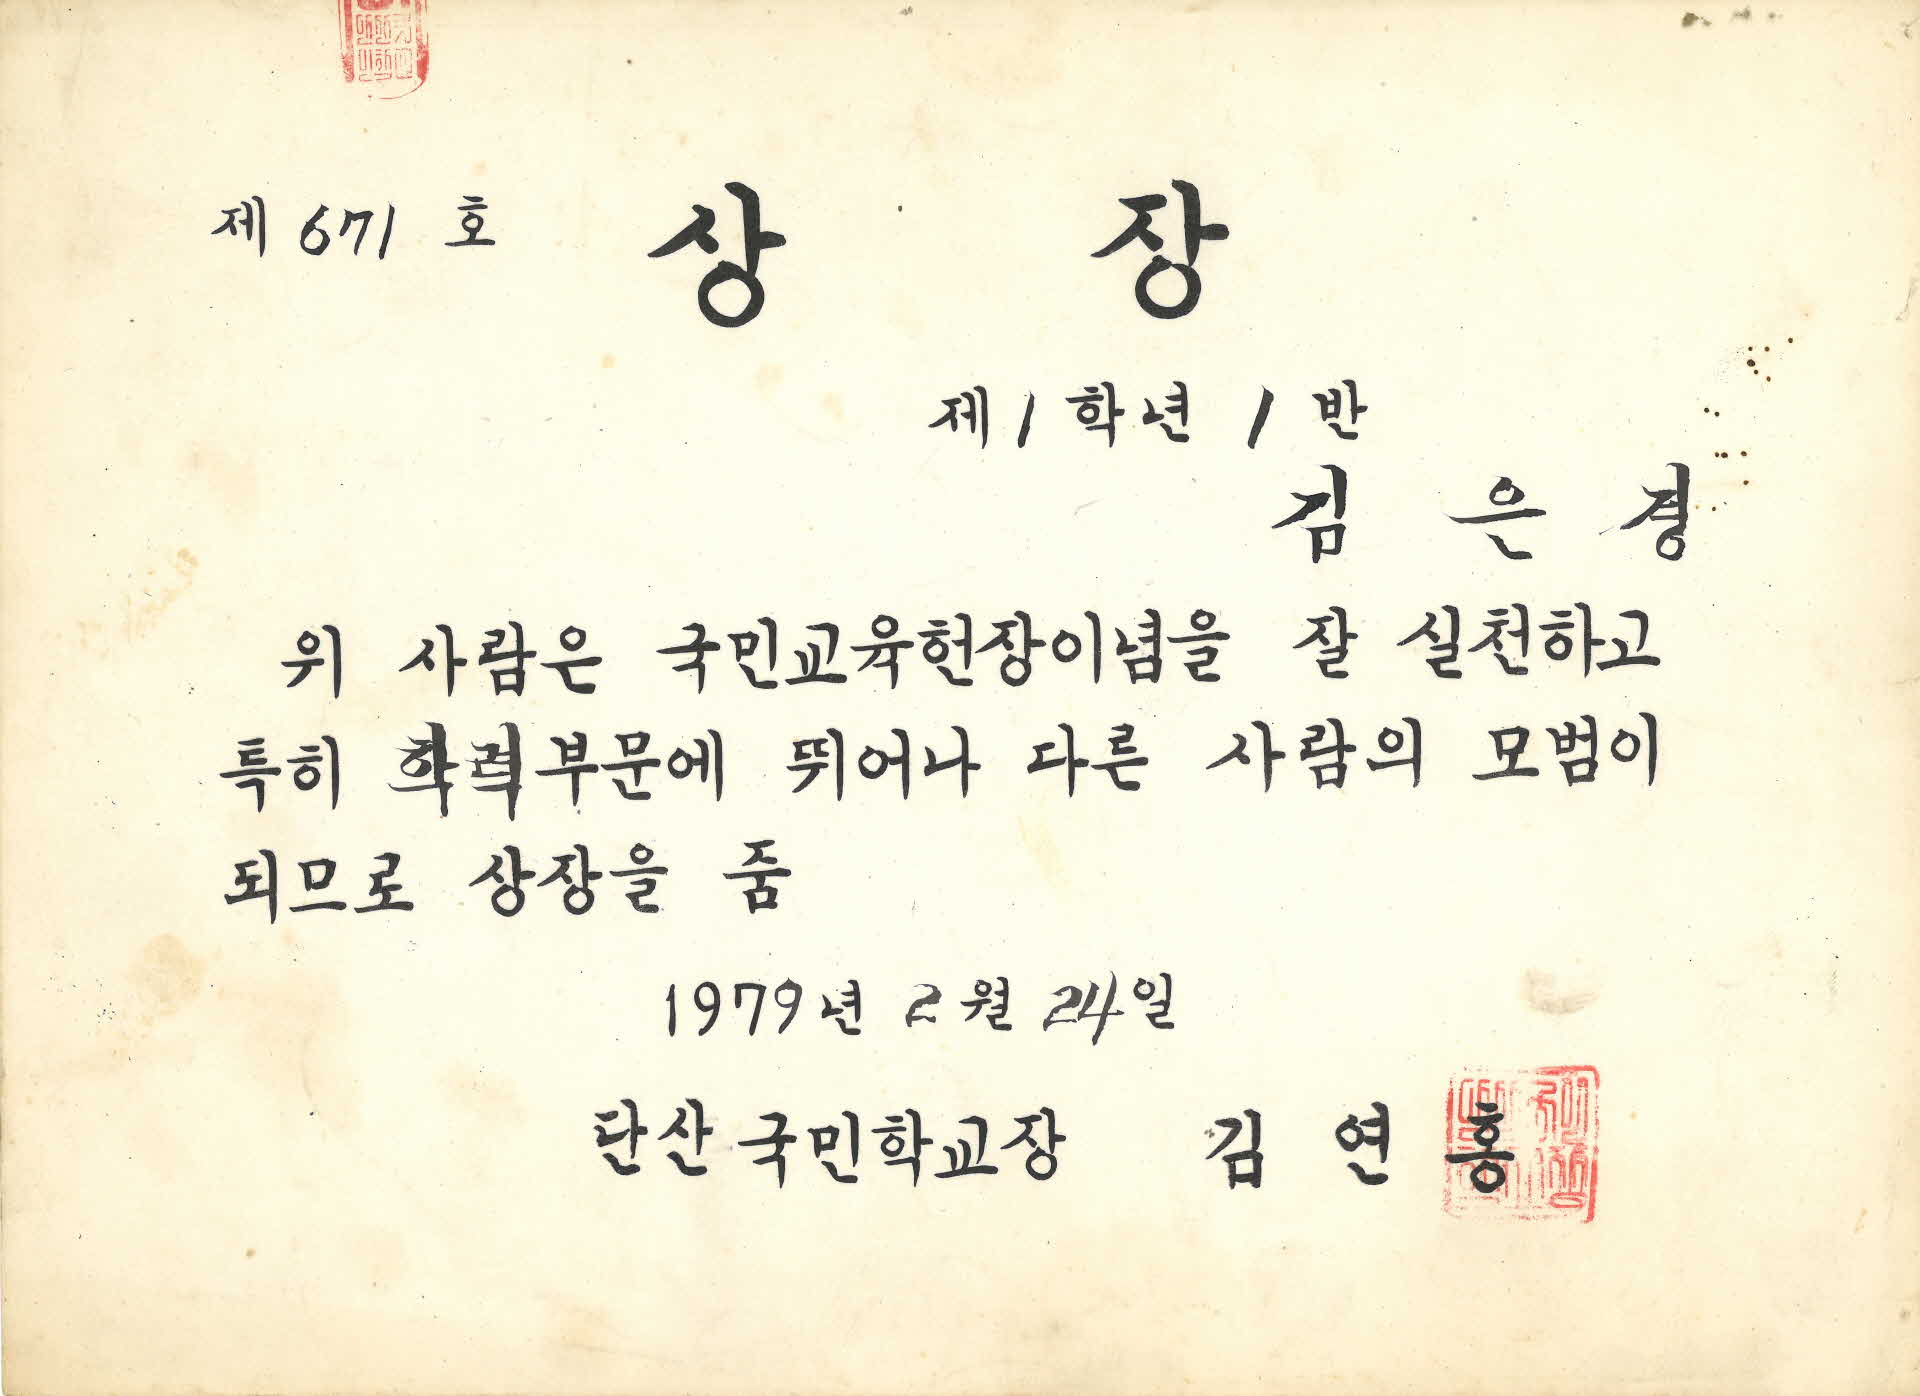 제 671 호 상 장
제 1 학년 1 반
김 은 경
위 사람은 국민교육헌장이념을 잘 실천하고
특히 학력부문에 뛰어나 다른 사람의 모범이
되므로 상장을 줌
1979년 2월 24일
단산국민학교장 김 연 홍